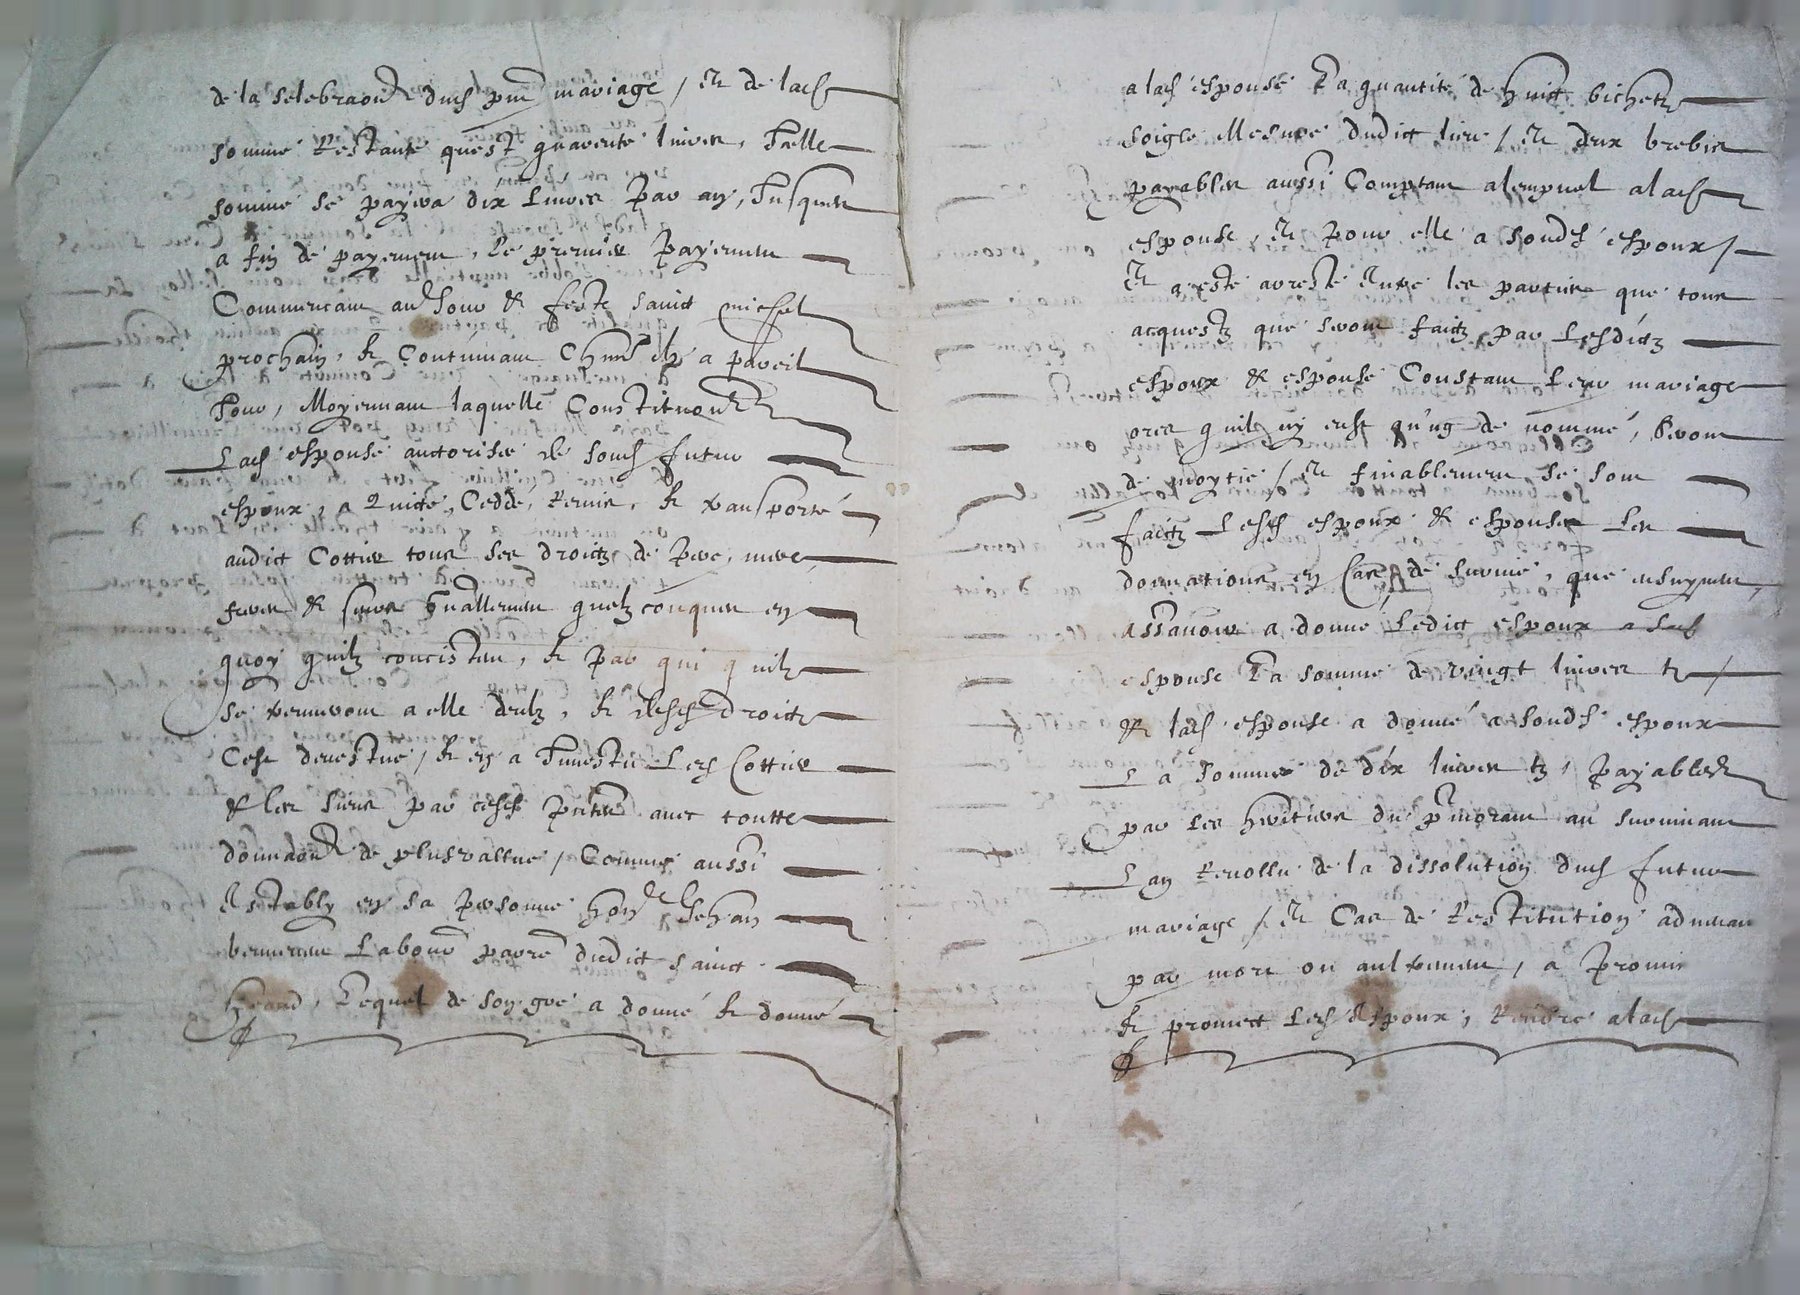 de la celebraon dud pnt mariage / et de lad
somme restante quest quarente livres, Icelle
somme se payera dix livres par an, Jusques
a fin de payement, le premier payement
Commencant au Jour & feste sainct michel
prochain, & Continuant a pareil
Jour, Moyennant laquelle Constitution
Lad espouse auctorisee de sond futur
espoux, a quité, Ceddé, remis, & transporté
audict Cottier tous ses droictz de pere, mere,
freres & seurs gnallement quelzconques en
quoy quilz concistent, & par qui quilz
se treuveront a elle deubz, & desd droictz
Cest devestue / & en a Investu led Cottier
& les siens par cesd pntes avec toutte
donnaon de plusvallue / Comme aussi
Estably en sa personne hon Jehan
laboure parre dudict sainct
, Lequel de son gre a donné & donne
a lad espouse La quantité de huict bichetz
soigle Mesure dudict lieu / Et deux brebis
payables aussi Comptant a lad
espouse, Et pour elle a sond espoux /
Et a esté arresté entre les parties que tous
acquestz que seront faictz par Lesdictz
espoux & espouse Constant leur mariage
ores quilz ny eust qu'ug de nommé, seront
de moytie / Et finablement se sont
faictz Lesd espoux & espouse Les
donnations en Cas de survie, que ensuyvent,
assavoir a donné Ledict espoux a lad
espouse La somme de vingt livres tz /
& lad espouse a donné a sond espoux
La somme de dix livres tz, payables
par les heritiers du pmorant au survivant
Lan revollu de la dissolution dud futur
mariage / Et Cas de restitution advenant
par mort ou aultrement, a promis
& promect Led Espoux, rendre a lad